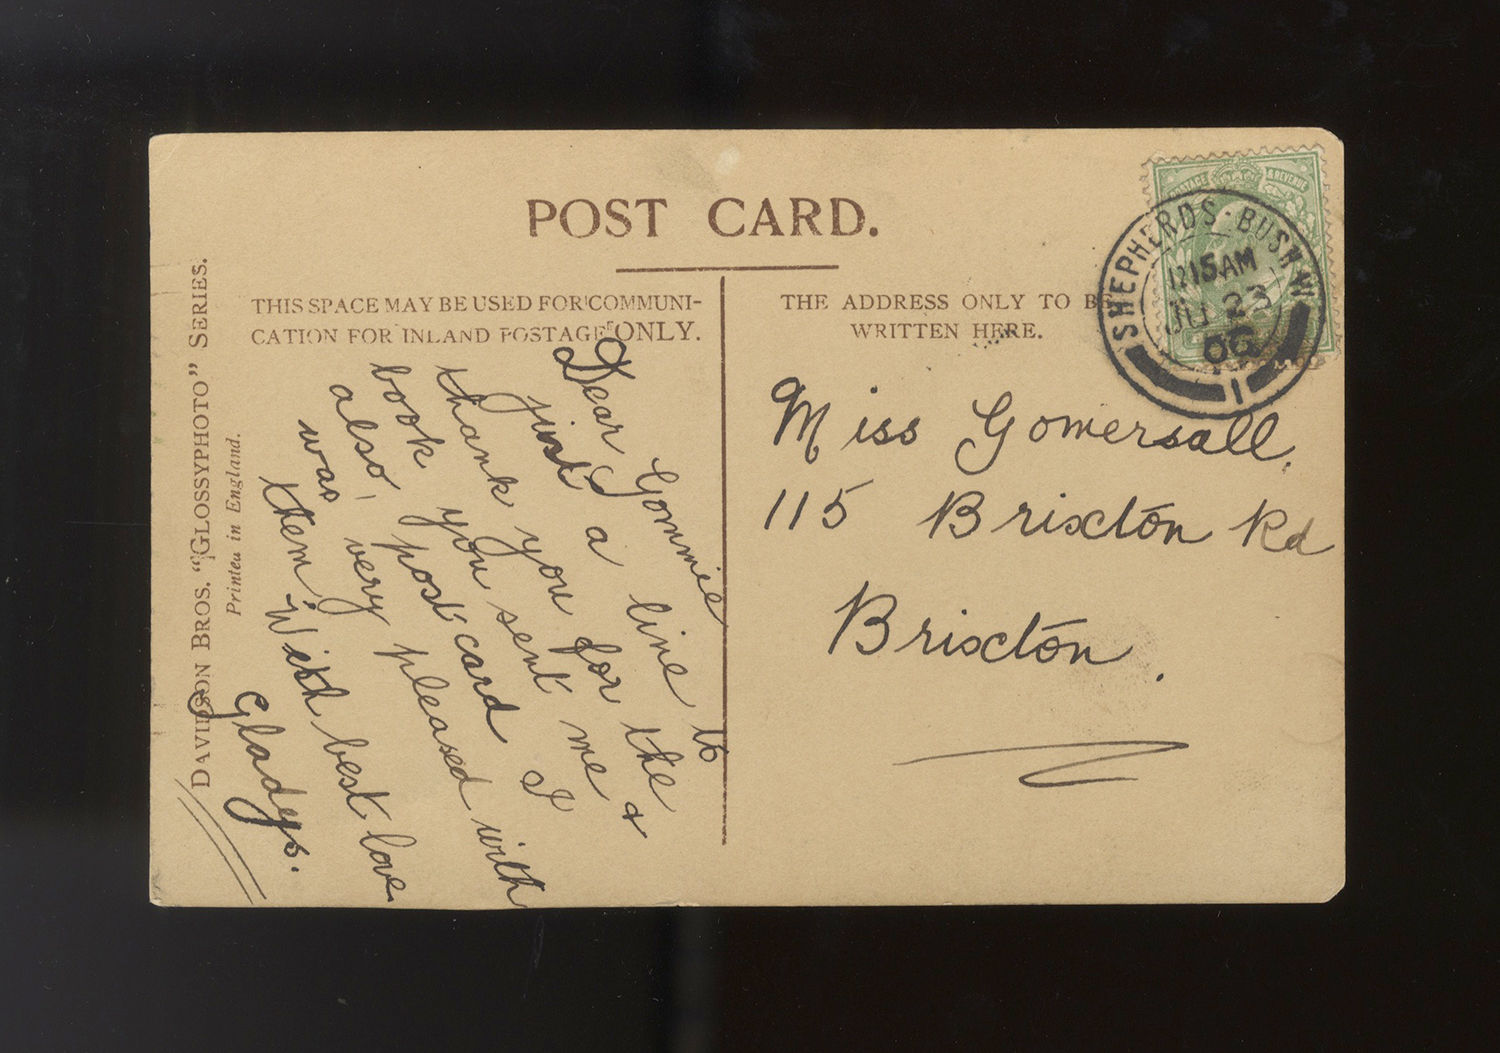 POST CARD.
THIS SPACE MAY BE USED FOR COMMUNI-
CATION FOR INLAND POSTAGE ONLY.
THE ADDRESS ONLY TO BE
WRITTEN HERE.
POSTAGE & REVENUE
SHEPHERDS·BUSH·W
JU 23
06
1
Dear Gommie
just a line to
thank you for the
book you sent me &
also, post card I
was very pleased with
them. With best love
Gladys.
Miss Gomersall.
115 Brixton Rd
Brixton.
DAVIDSON BROS. "GLOSSYPHOTO" SERIES.
Printed in England.